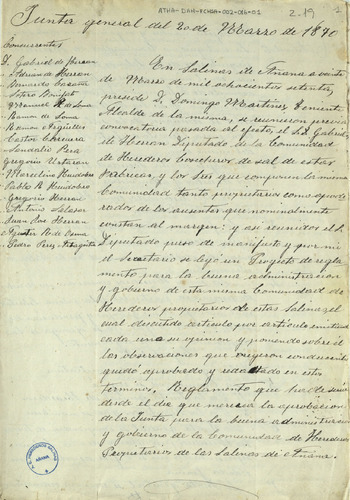 ATHA-DAH-FCHSA-002-016-01
2.19
Junta general del 20 de Marzo de 1870
Concurrentes
D. Gabriel de Herran
Adrian de Herran
Bernardo
Sotero Bonifaz
Manuel R. de Soma
Ramon de Soma
Ramon Argüelles
Castor Herrera
Sandalio Pera
Gregorio Usturan
Marcelino Huidobro
Pablo R. Huidobro
Gregorio Herran
Antonio Salazar
Juan José Herran
de Osma
Pedro Perez
En Salinas de Añana a veinte
de Marzo de mil ochocientos setenta,
preside D. Domingo Martinez Teniente
Alcalde de la misma, se reunieron previa
convocatoria pasada al efecto, el S.r D. Gabriel
de Herran Diputado de la Comunidad
de Herederos de sal de estas
Fabricas, y los Sres que componen la misma
Comunidad tanto propietarios como apode
rados de los ausentes que nominalmente
constan al margen: y asi reunidos el S.r
Diputado puso de manifiesto y por mi
el Secretario se leyó un Proyecto de regla
mento para la buena administracion
y gobierno de esta misma Comunidad de
Herederos propietarios de estas Salinas, el
cual discutido articulo por articulo emitiendo
cada uno su opinion y poniendo sobre él
las observaciones que creyeron
quedó aprobado y redactado en estos
terminos. Reglamento que ha de servir
desde el dia que merezca la aprobacion
de la Junta para la buena administracion
y gobierno de la Comunidad de Herederos
Propietarios de las Salinas de Añana.